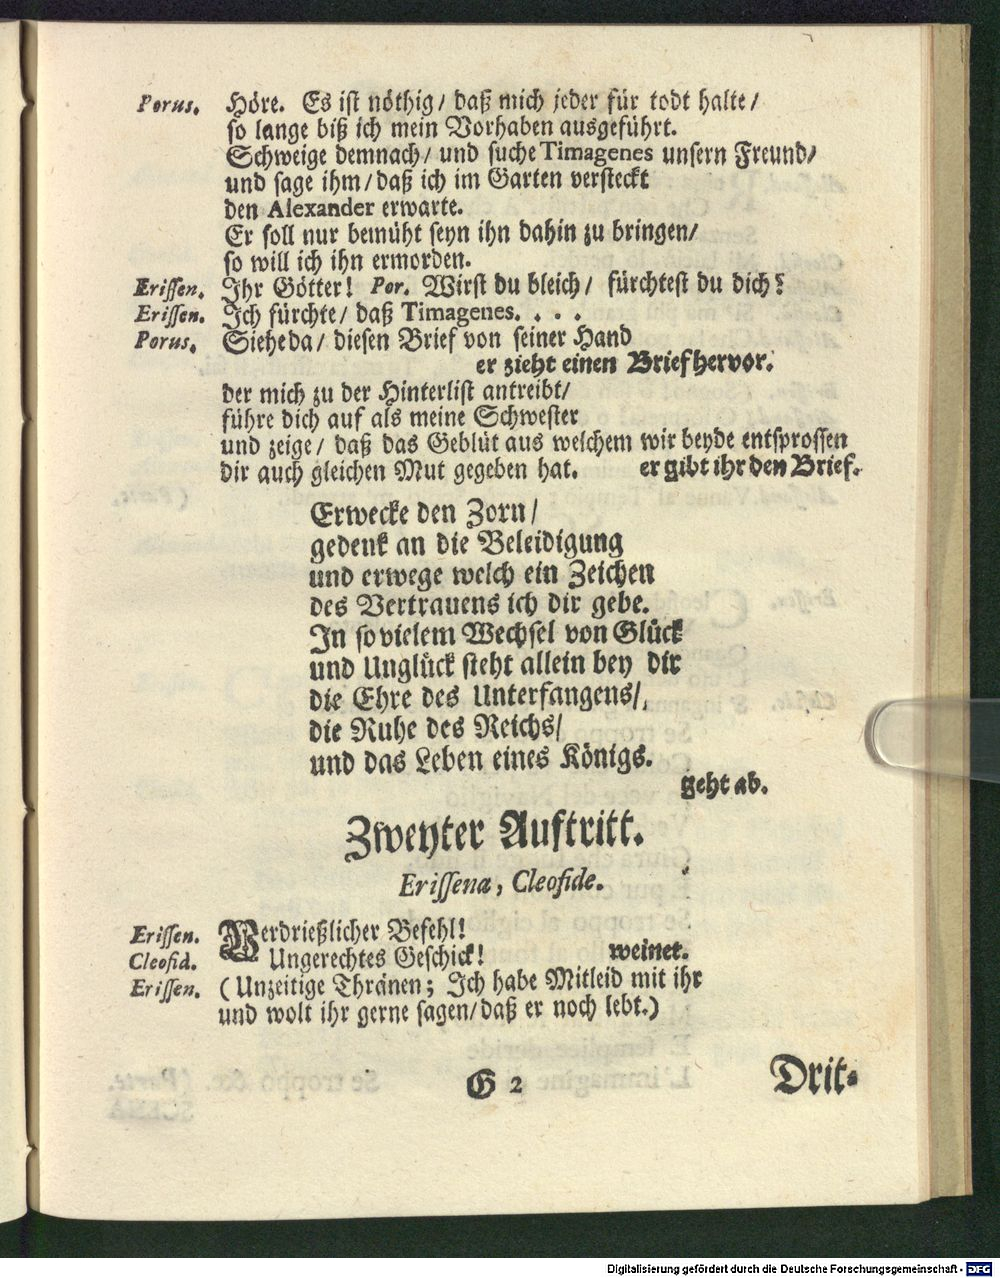 Porus. Höre. Es ist nöthig/ daß mich jeder für todt halte/
so lange biß ich mein Vorhaben ausgeführt.
Schweige demnach/ und suche Timagenes unsern Freund/
und sage ihm/ daß ich im Garten versteckt
den Alexander erwarte.
Er soll nur bemüht seyn ihn dahin zu bringen/
so will ich ihn ermorden.
Erissen. Ihr Götter! Por. Wirst du bleich/ fürchtest du dich?
Erissen. Ich fürchte/ daß Timagenes. . . .
Porus. Siehe da/ diesen Brief von seiner Hand
er zieht einen Brief hervor.
der mich zu der Hinterlist antreibt/
führe dich auf als meine Schwester
und zeige/ daß das Geblüt aus welchem wir beyde entsprossen
dir auch gleichen Mut gegeben hat. er gibt ihr den Brief.
Erwecke den Zorn/
gedenk an die Beleidigung
und erwege welch ein Zeichen
des Vertrauens ich dir gebe.
In so vielem Wechsel von Glück
und Unglück steht allein bey dir
die Ehre des Unterfangens/,
die Ruhe des Reichs/
und das Leben eines Königs.
geht ab.
Zweyter Auftritt.
Erissena, Cleofide.
Erissen. Verdrießlicher Befehl!
Cleofid. Ungerechtes Geschick! weinet.
Erissen. (Unzeitige Thränen; Ich habe Mitleid mit ihr
und wolt ihr gerne sagen/ daß er noch lebt.)
G 2 Drit-
Digitalisierung gefördert durch die Deutsche Forschungsgemeinschaft - DFG